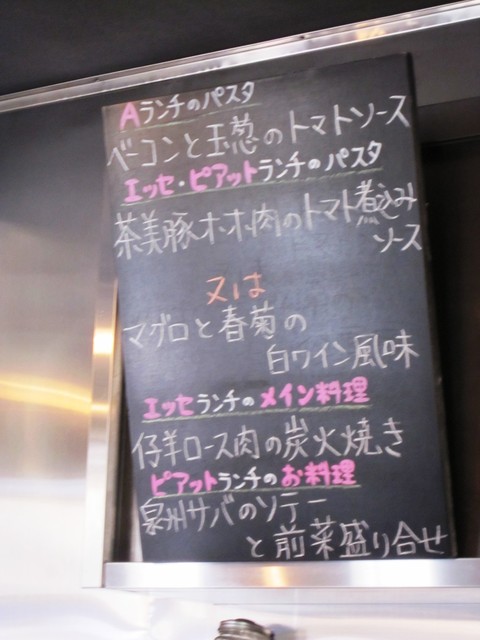 Aランチのパスタ
ベーコンと玉葱のトマトソース
エッセ・ピアットランチのパスタ
茶美豚ホホ肉のトマト煮込み
ソース
又は
マグロと春菊の
白ワイン風味
エッセランチのメイン料理
仔羊ロース肉の炭火焼き
ピアットランチのお料理
泉州サバのソテー
と前菜盛り合せ